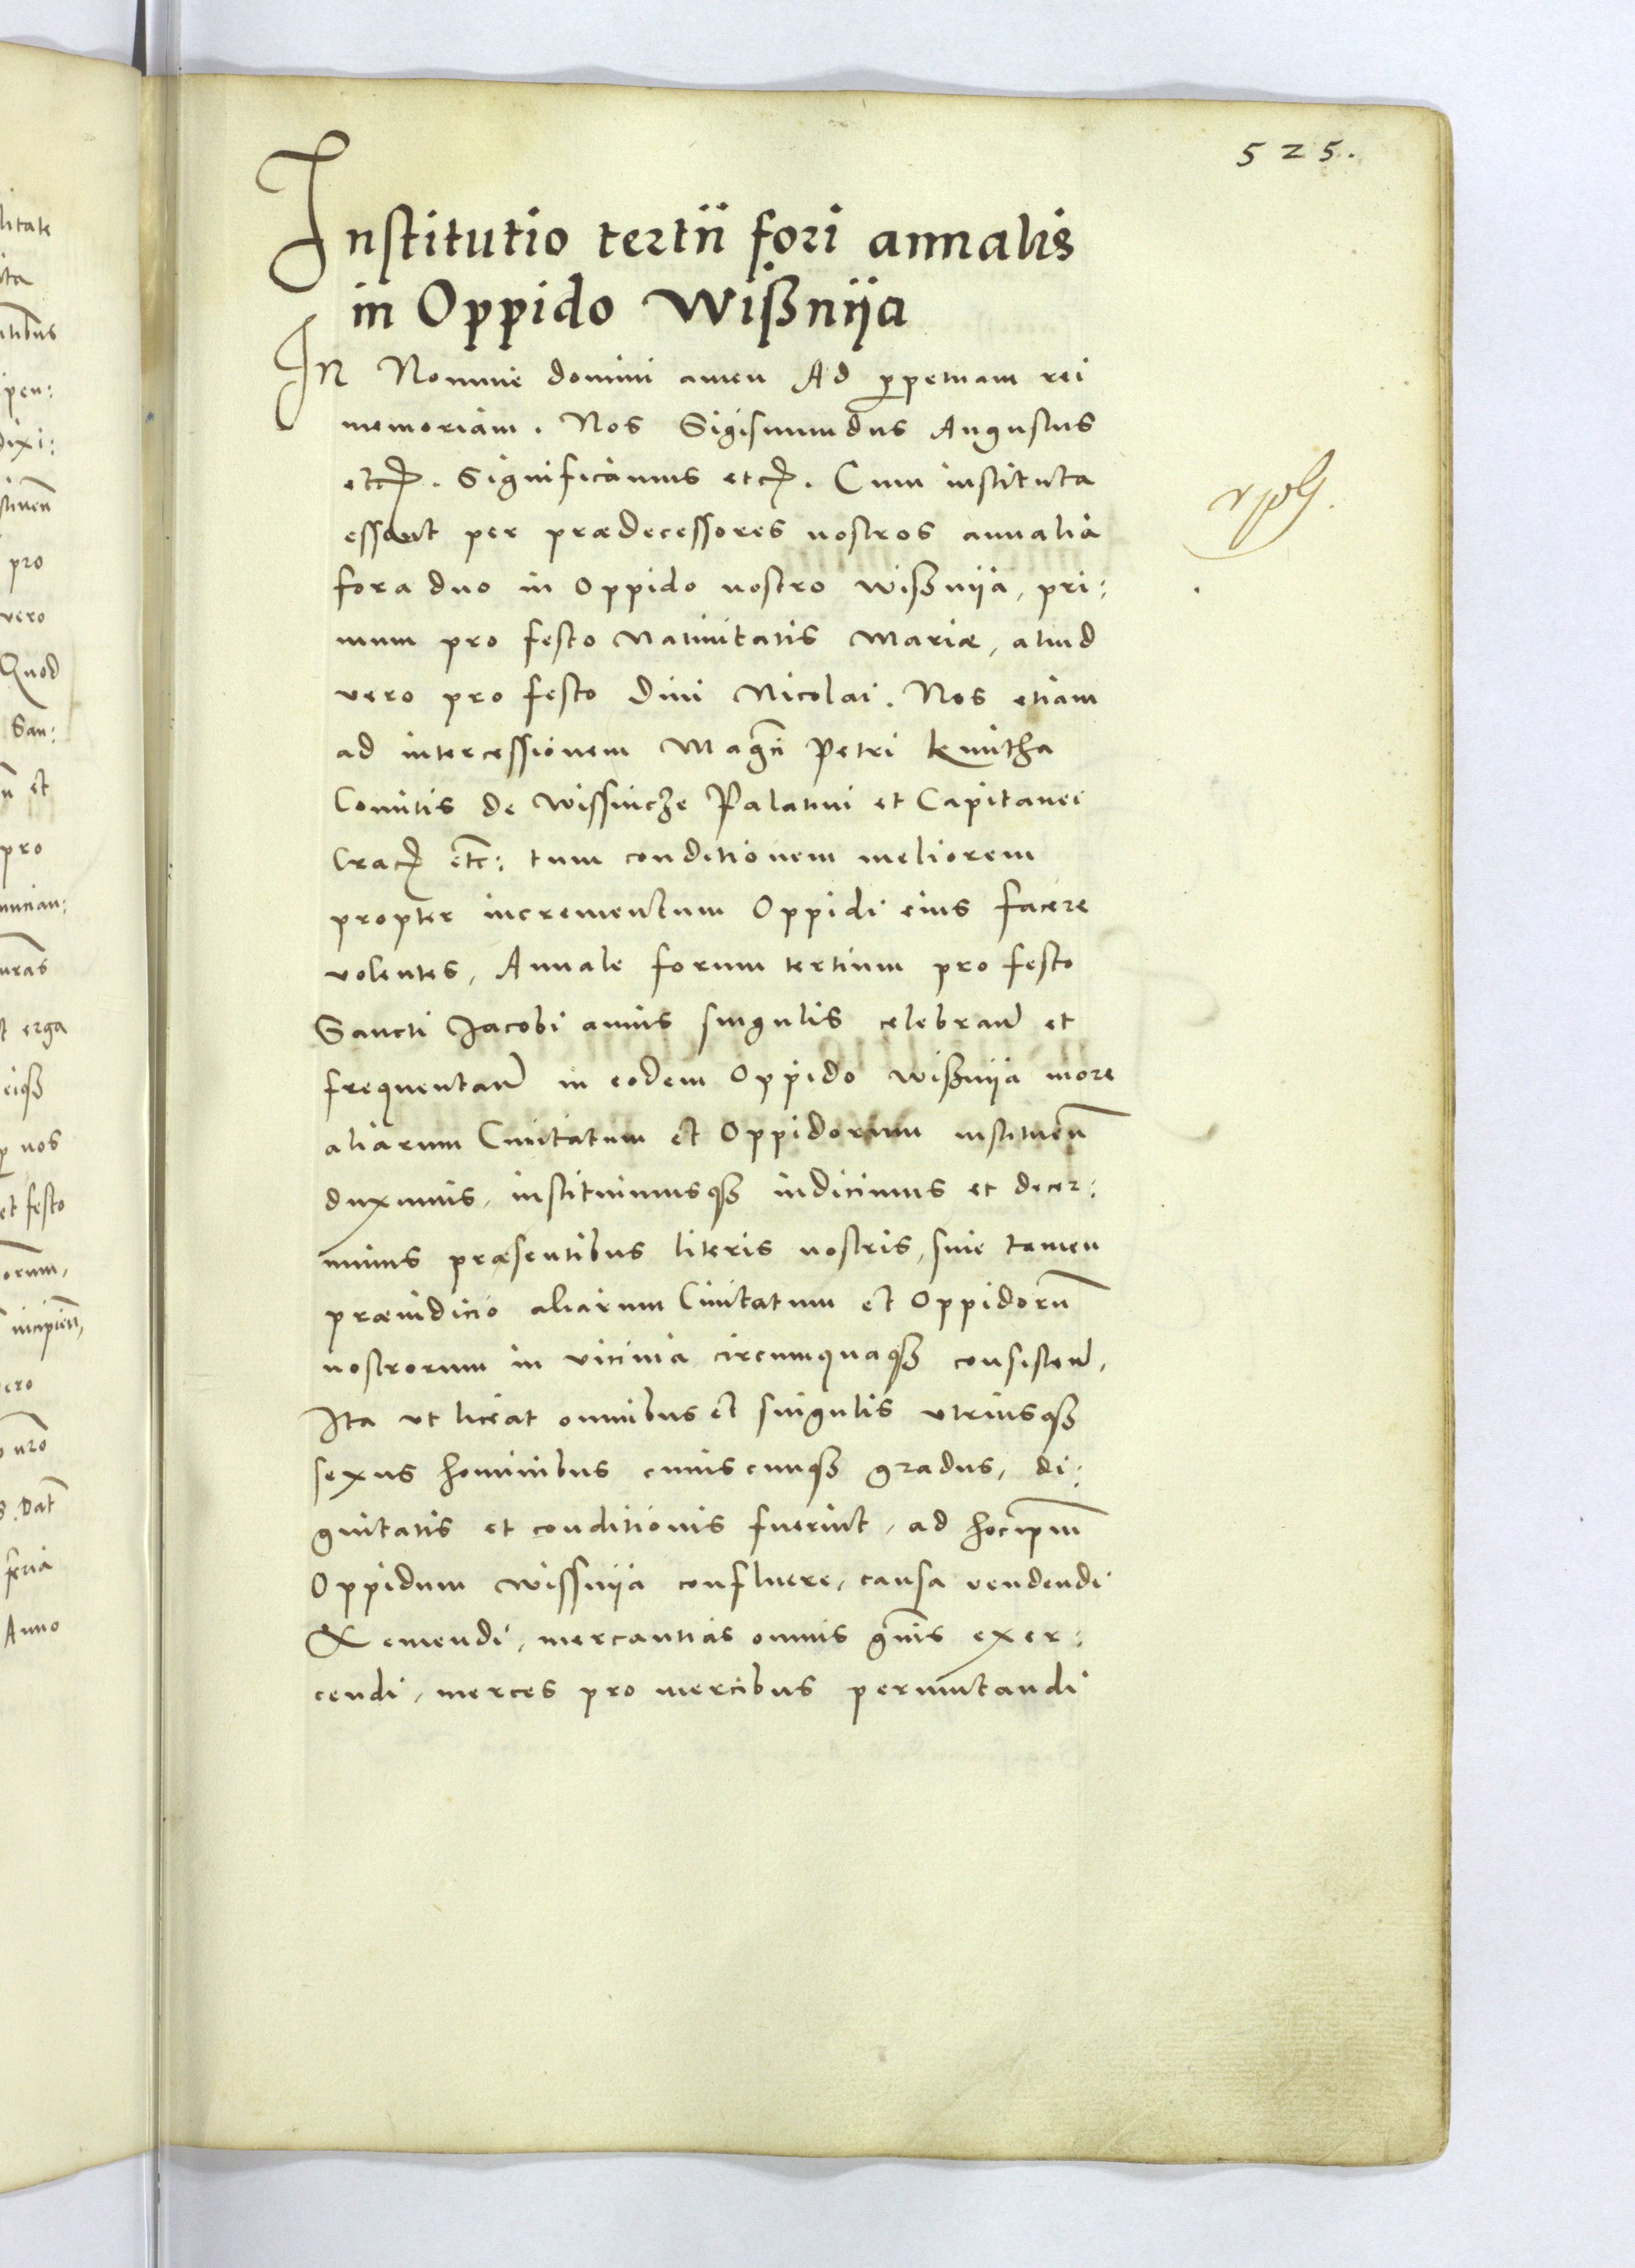 525.
Institutio tertii fori annalis
in Oppido Wißnija
In Nomine domini amen Ad ꝑpetuam rei
memoriam. Nos Sigismundus Augustus
etc. Significamus etc. Cum instituta
essent per prædecessores nostros annalia
fora duo in Oppido nostro Wißnija, pri:
mum pro festo Natiuitatis Mariæ, aliud
vero pro festo Diui Nicolai. Nos etiam
ad intercessionem Magⁿⁱ Petri Kmitha
Comitis de Wissnicze Palatini et Capitanei
Crac etc: tum conditionem meliorem
propter incrementum Oppidi eius facere
volentes, Annale forum tertium pro festo
Sancti Jacobi annis singulis celebran̄ et
frequentan̄ in eodem Oppido Wißnija more
aliarum Ciuitatum et Oppidorum instituen̄
duximus, instituimusqȝ indicimus et decer:
nimus præsentibus literis nostris, sine tamen
præiudicio aliarum Ciuitatum et Oppidorū
nostrorum in vicinia circumquaqȝ consisten̄,
Ita vt liceat omnibus et singulis vtriusqȝ
sexus hominibus cuiuscunqȝ gradus, di:
gnitatis et conditionis fuerint, ad hoc ip̄m
Oppidum Wissnija confluere, causa vendendi
& emendi, mercantias omnis gn̄is exer:
cendi, merces pro mercibus permutandi
litate
pro
vero
Quod
San:
et
pro
erga
nos
et festo
Anno